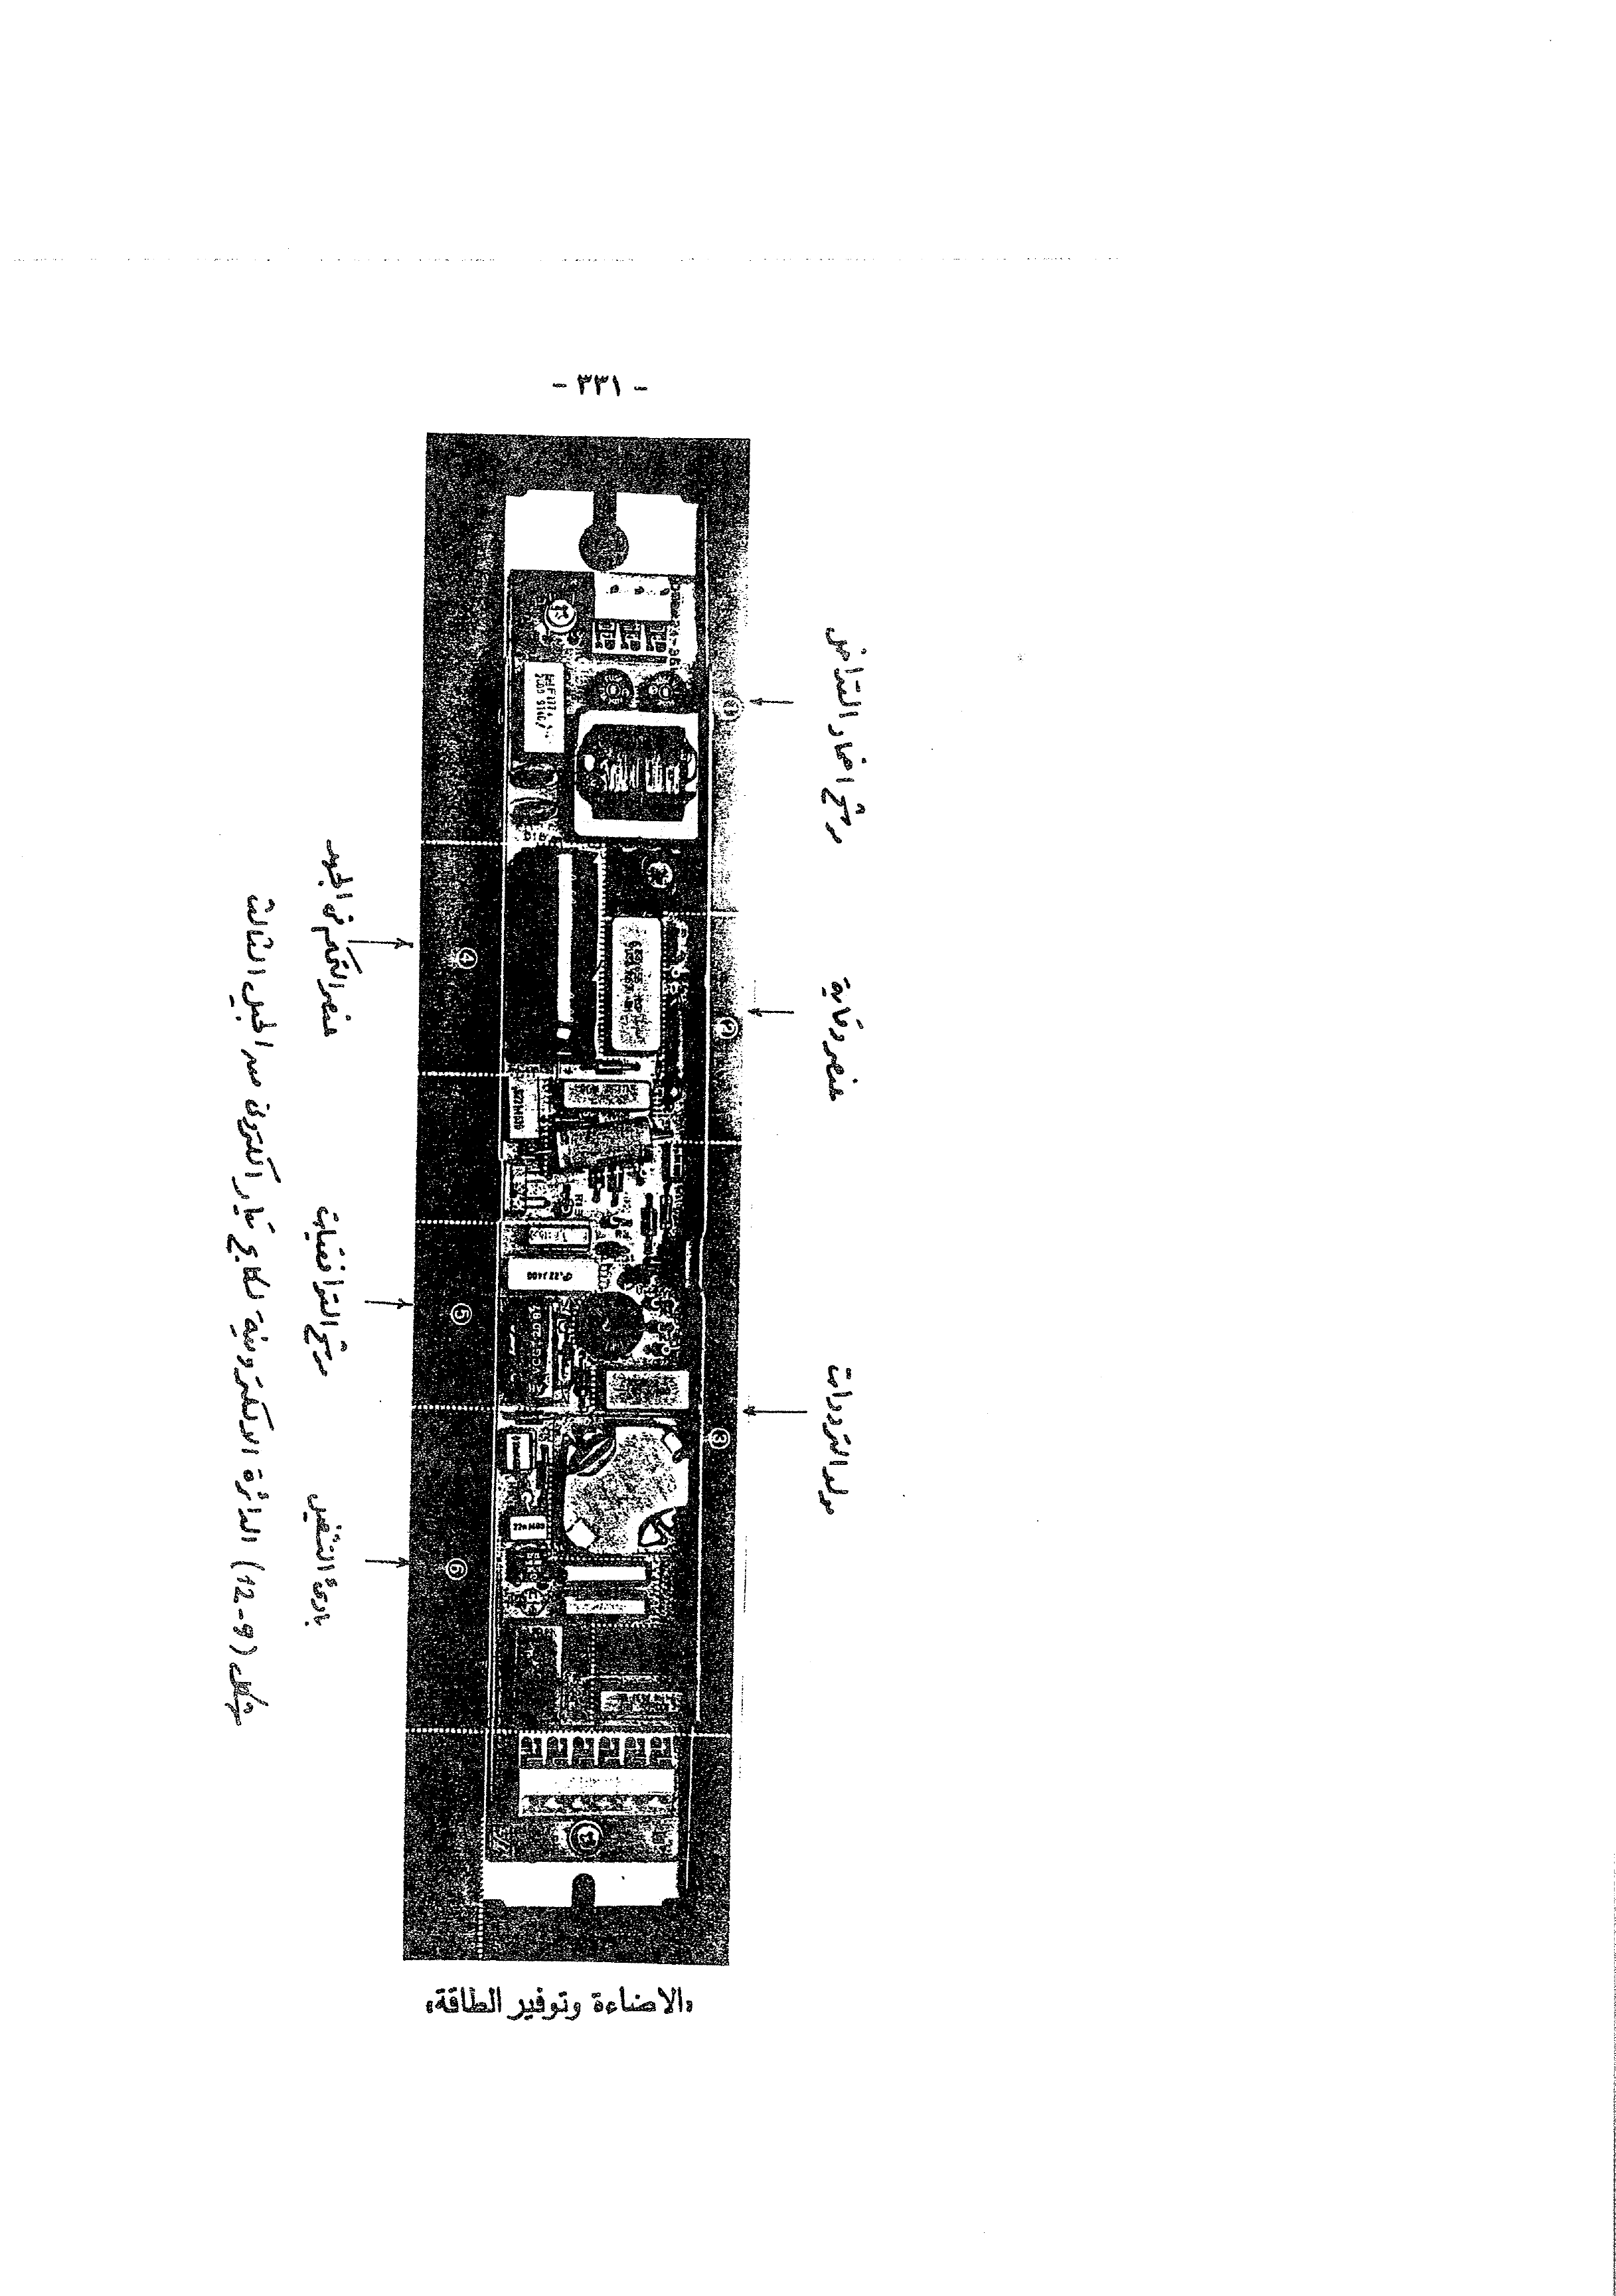 - ٣٣١ -
مرشح اخماد التداخل
عنصر وقاية
مولد الترددات
①
②
③
④
⑤
⑥
عنصر التحكم في الجهد
مرشح التوافقيات
بادئ التشغيل
شكل (9-12) الدائرة الالكترونية لكابح تيار الكترونى من الجيل الثالث
22n J400
«الاضاءة وتوفير الطاقة»